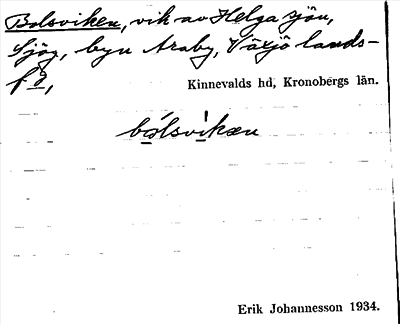 Bolsviken, vik av Helga sjön,
Sjög, byn Araby, Växjö lands-
fs,
Kinnevalds hd, Kronobergs län.
bólsvìkæn
Erik Johannesson 1934.